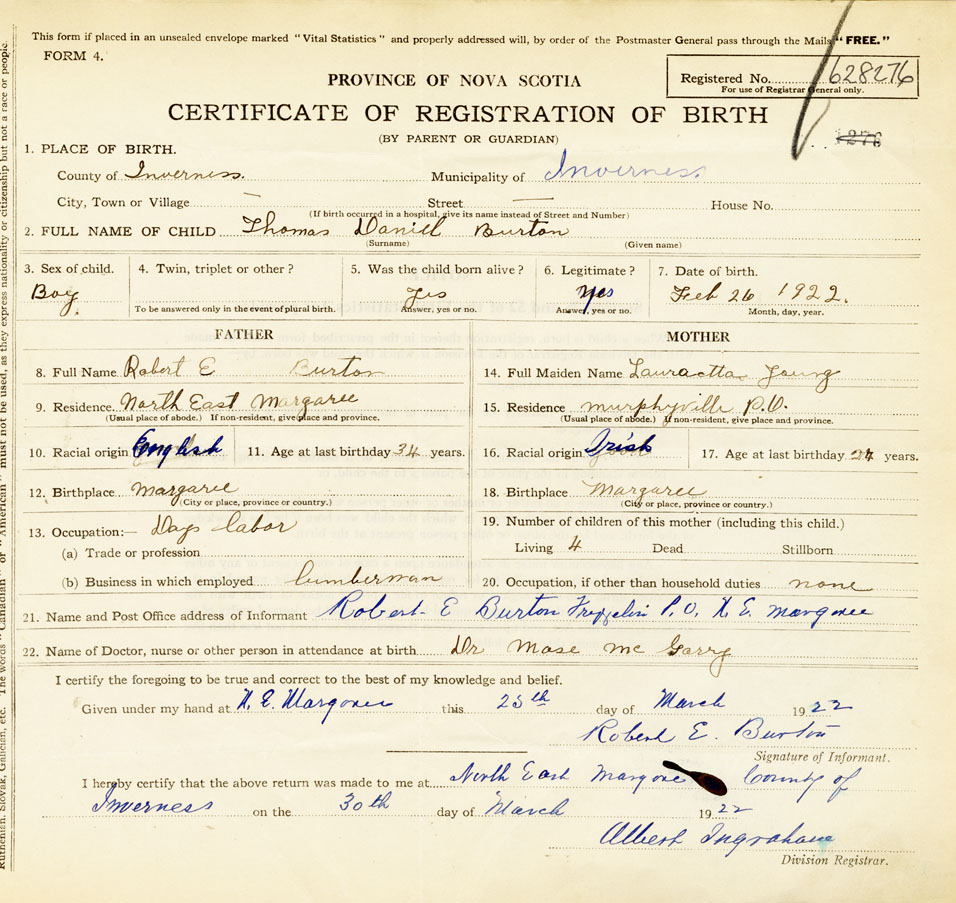 This form if placed in an unsealed envelope marked "Vital Statistics" and properly addressed will, by order of the Postmaster General pass through the Mails "FREE."
FORM 4.
PROVINCE OF NOVA SCOTIA
Registered No. 628276
For use of Registrar General only.
CERTIFICATE OF REGISTRATION OF BIRTH
(BY PARENT OR GUARDIAN)
1. PLACE OF BIRTH.
County of Inverness. Municipality of Inverness
City, Town or Village — Street — House No.
(If birth occurred in a hospital, give its name instead of Street and Number)
2. FULL NAME OF CHILD Thomas Daniel Burton
(Surname) (Given name)
3. Sex of child. 4. Twin, triplet or other? 5. Was the child born alive? 6. Legitimate? 7. Date of birth.
Boy. yes yes Feb 26 1922.
To be answered only in the event of plural birth. Answer, yes or no. Answer, yes or no. Month, day, year.
FATHER MOTHER
8. Full Name Robert E Burton 14. Full Maiden Name Lauraetta Young
9. Residence North East Margaree 15. Residence Murphyville P.O.
(Usual place of abode.) If non-resident, give place and province. (Usual place of abode.) If non-resident, give place and province.
10. Racial origin English 11. Age at last birthday 34 years. 16. Racial origin Irish 17. Age at last birthday years.
12. Birthplace Margaree 18. Birthplace Margaree
(City or place, province or country.) (City or place, province or country.)
13. Occupation:— Days labor 19. Number of children of this mother (including this child.)
(a) Trade or profession Living 4 Dead Stillborn
(b) Business in which employed lumberman 20. Occupation, if other than household duties none
21. Name and Post Office address of Informant Robert E Burton P.O. N.E. Margaree
22. Name of Doctor, nurse or other person in attendance at birth Dr Mose Mc Garry
I certify the foregoing to be true and correct to the best of my knowledge and belief.
Given under my hand at N.E. Margaree this 25th day of March 1922
Robert E. Burton
Signature of Informant.
I hereby certify that the above return was made to me at North East Margaree County of
Inverness on the 30th day of March 1922
Albert Ingraham
Division Registrar.
Ruthenian, Slovak, Galician, etc. The words "Canadian" or "American" must not be used, as they express nationality or citizenship but not a race or people.